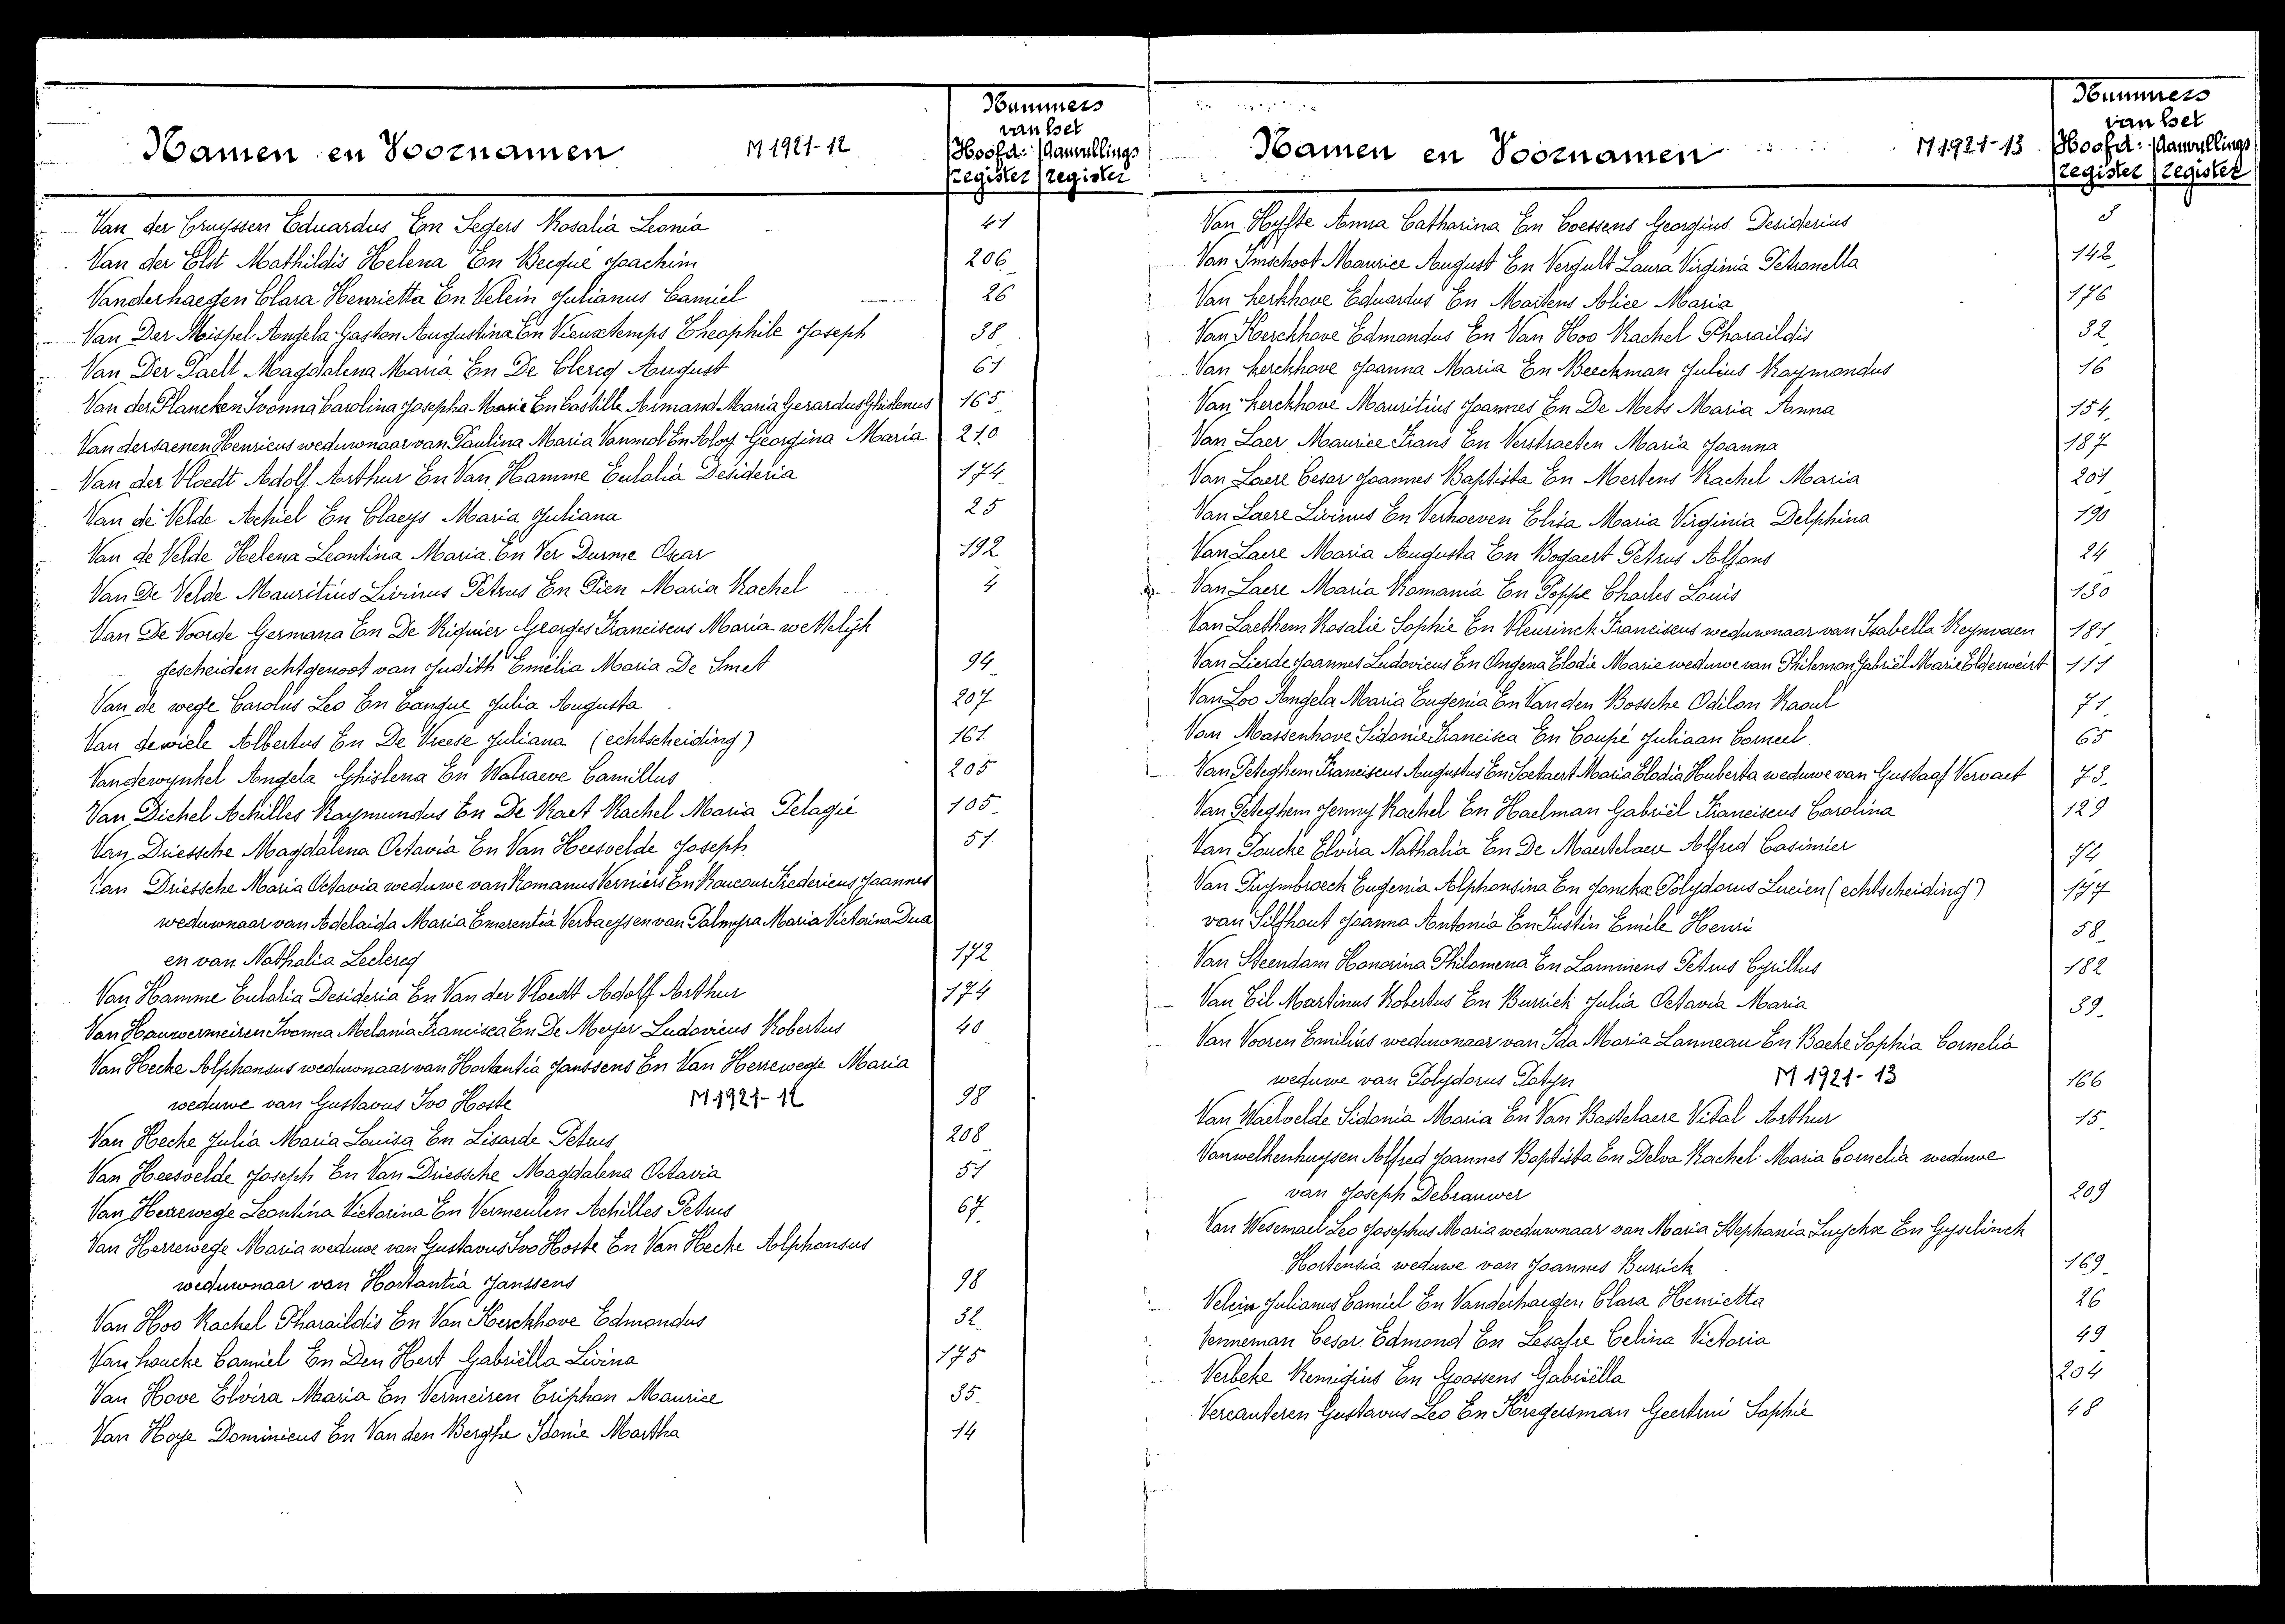 Namen en Voornamen M 1921-12
Nummers
van het
Hoofd: Aanvullings
register register
Van der Cruyssen Eduardus En Segers Rosalia Leonia 41
Van der Elst Mathildis Helena En Becqué Joachim 206
Vanderhaegen Clara Henrietta En Velein Julianus Camiel 26
Van Der Meispel Angela Gaston Augustina En Vieuxtemps Theophile Joseph 38
Van Der Paelt Magdalena Maria En De Clercq August 61
Van der Plancken Ivonna Carolina Josepha Marie En Castille Armand Maria Gerardus Ghislenus 165
Van dersaenen Henricus weduwnaar van Paulina Maria Vanmol En Aloy Georgina Maria 210
Van der Vloedt Adolf Arthur En Van Hamme Eulalia Desideria 174
Van de Velde Achiel En Claeys Maria Juliana 25
Van de Velde Helena Leontina Maria En Ver Durme Oscar 192
Van De Velde Mauritius Livinus Petrus En Pien Maria Rachel 4
Van De Voorde Germana En De Riguier Georges Franciscus Maria wettelijk
gescheiden echtgenoot van Judith Emelia Maria De Smet 94
Van de wege Carolus Leo En Cangue Julia Augusta 207
Van dewiele Albertus En De Vreese Juliana (echtscheiding) 161
Vandewynkel Angela Ghislena En Walraeve Camillus 205
Van Dichel Achilles Raymundus En De Raet Rachel Maria Pelagie 105
Van Driessche Magdalena Octavia En Van Heesvelde Joseph 51
Van Driessche Maria Octavia weduwe van Romanus Verniers En Roucour Fredericus Joannes
weduwnaar van Adelaida Maria Emerentia Verbaeyssen van Palmyra Maria Victorina Dua
en van Nathalia Leclercq 172
Van Hamme Eulalia Desideria En Van der Vloedt Adolf Arthur 174
Van Hauwermeiren Ivonna Melania Francisca En De Meyer Ludovicus Robertus 40
Van Hecke Alphonsus weduwnaar van Hortantia Janssens En Van Herrewege Maria
weduwe van Gustavus Ivo Hoste M 1921-12 98
Van Hecke Julia Maria Louisa En Lisarde Petrus 208
Van Heesvelde Joseph En Van Driessche Magdalena Octavia 51
Van Herrewege Leontina Victorina En Vermeulen Achilles Petrus 67
Van Herrewege Maria weduwe van Gustavus Ivo Hoste En Van Hecke Alphonsus
weduwnaar van Hortantia Janssens 98
Van Hoo Rachel Pharaildis En Van Kerckhove Edmondus 32
Van houcke Camiel En Den Hert Gabriëlla Livina 175
Van Hove Elvira Maria En Vermeiren Triphon Maurice 35
Van Hoye Dominicus En Van den Berghe Idonie Martha 14
Namen en Voornamen M 1921-13
Nummers
van het
Hoofd: Aanvullings
register register
Van Hyfte Anna Catharina En Coessens Georgius Desiderius 3
Van Imschoot Maurice August En Vergult Laura Virginia Petronella 142
Van kerkhove Eduardus En Martens Alice Maria 176
Van Kerckhove Edmondus En Van Hoo Rachel Pharaildis 32
Van kerckhove Joanna Maria En Beeckman Julius Raymondus 16
Van kerckhove Mauritius Joannes En De Mets Maria Anna 154
Van Laer Maurice Frans En Verstraeten Maria Joanna 187
Van Laere Cesar Joannes Baptista En Mertens Rachel Maria 201
Van Laere Livinus En Verhoeven Elisa Maria Virginia Delphina 190
Van Laere Maria Augusta En Bogaert Petrus Alfons 24
Van Laere Maria Romania En Poppe Charles Louis 130
Van Laethem Rosalie Sophie En Vleurinck Franciscus weduwnaar van Isabella Reynvoen 181
Van Lierde Joannes Ludovicus En Ongena Elodie Marie weduwe van Philemon Gabriël Marie Elderweirt 111
Van Loo Angela Maria Eugenia En Van den Bossche Odilon Raoul 71
Van Massenhove Sidonie Francisca En Coupé Juliaan Corneel 65
Van Peteghem Franciscus Augustus En Soetaert Maria Elodia Huberta weduwe van Gustaaf Vervaet 73
Van Peteghem Jenny Rachel En Haelman Gabriël Franciscus Carolina 129
Van Poucke Elvira Nathalia En De Maertelaere Alfred Casimier 74
Van Puymbroeck Eugenia Alphonsina En Jonckx Polydorus Lucien (echtscheiding) 177
van Silfhout Joanna Antonia En Justin Emile Henri 58
Van Steendam Honorina Philomena En Lammens Petrus Cyrillus 182
Van Til Martinus Robertus En Burrick Julia Octavia Maria 39
Van Vooren Emilius weduwnaar van Ida Maria Lanneau En Backe Sophia Cornelia
weduwe van Polydorus Patyn M 1921-13 166
Van Waelvelde Sidonia Maria En Van Bastelaere Vital Arthur 15
Vanwelkenhuysen Alfred Joannes Baptista En Delva Rachel Maria Cornelia weduwe
van Joseph Debrauwer 209
Van Wesemael Leo Josephus Maria weduwnaar van Maria Stephania Luyckx En Gyselinck
Hortensia weduwe van Joannes Burrick 169
Velein Julianus Camiel En Vanderhaegen Clara Henrietta 26
Venneman Cesar Edmond En Lesafre Celina Victoria 49
Verbeke Remigius En Goossens Gabriëlla 204
Vercauteren Gustavus Leo En Kregersman Geertrui Sophie 48